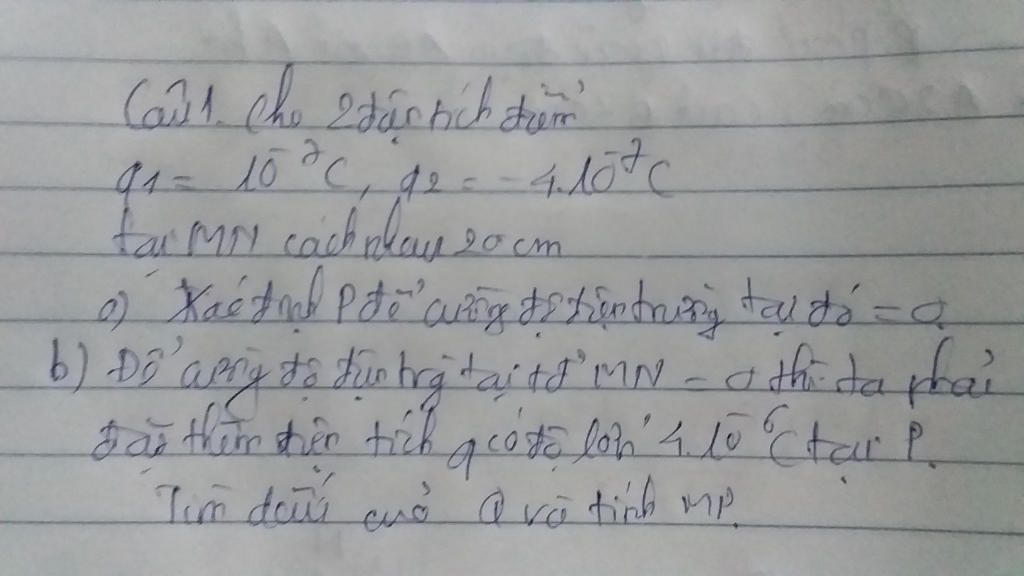 Câu 1. Cho 2 điện tích điểm
q1 = 10⁻⁷C, q2 = -4.10⁻⁷C
tại MN cách nhau 20cm
a) Xác định P để cường độ điện trường tại đó = 0
b) Để cường độ điện trg tại tđ MN = 0 thì ta phải
đặt thêm điện tích q có độ lớn 4.10⁻⁶C tại P.
Tìm dấu của Q và tính MP.